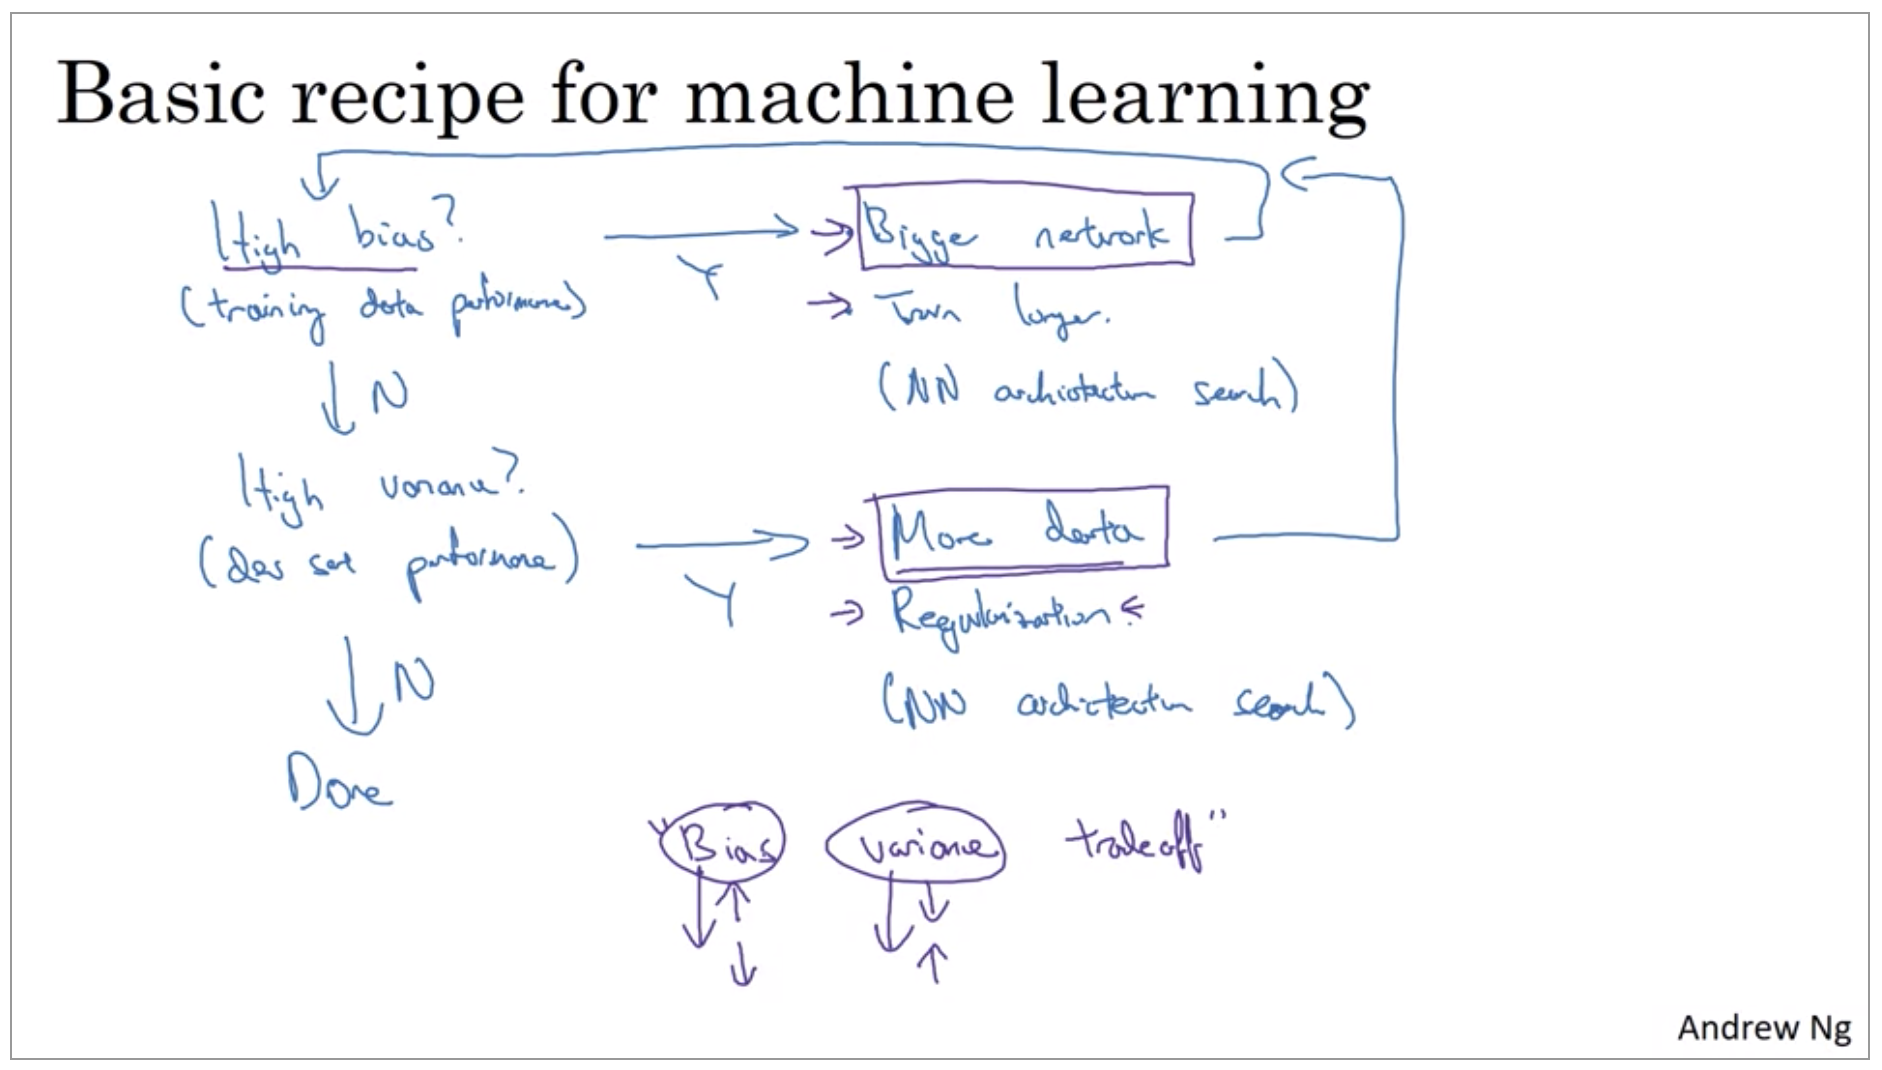 Basic recipe for machine learning
High bias?
(training data performance)
Y
Bigger network
Train longer.
(NN architecture search)
N
High variance?
(dev set performance)
Y
More data
Regularization.
(NN architecture search)
N
Done
"Bias variance tradeoff"
Andrew Ng